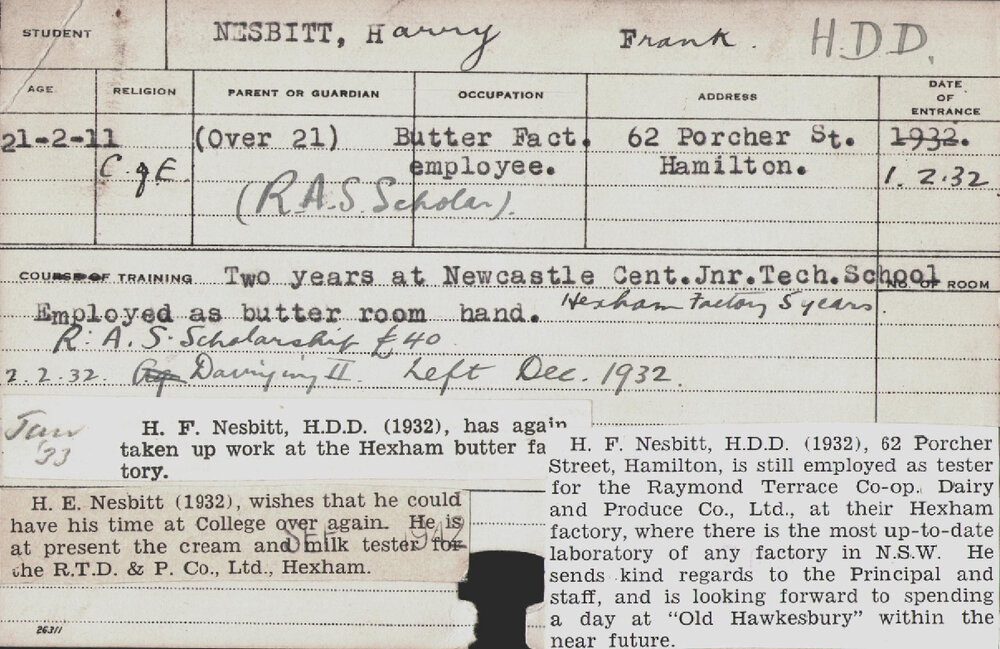 STUDENT NESBITT, Harry Frank. H.D.D.
AGE RELIGION PARENT OR GUARDIAN OCCUPATION ADDRESS DATE OF ENTRANCE
21-2-11 (Over 21) Butter Fact. 62 Porcher St. 1932.
C of E employee. Hamilton. 1.2.32
(R.A.S. Scholar).
COURSE OF TRAINING Two years at Newcastle Cent.Jnr.Tech.School NO. OF ROOM
Employed as butter room hand. Hexham Factory 5 years.
R.A.S. Scholarship £40
2.2.32. Dairying II. Left Dec. 1932.
Jan '33
H. F. Nesbitt, H.D.D. (1932), has again
taken up work at the Hexham butter fa
tory.
H. E. Nesbitt (1932), wishes that he could
have his time at College over again. He is
at present the cream and milk tester for
the R.T.D. & P. Co., Ltd., Hexham.
H. F. Nesbitt, H.D.D. (1932), 62 Porcher
Street, Hamilton, is still employed as tester
for the Raymond Terrace Co-op. Dairy
and Produce Co., Ltd., at their Hexham
factory, where there is the most up-to-date
laboratory of any factory in N.S.W. He
sends kind regards to the Principal and
staff, and is looking forward to spending
a day at "Old Hawkesbury" within the
near future.
26311